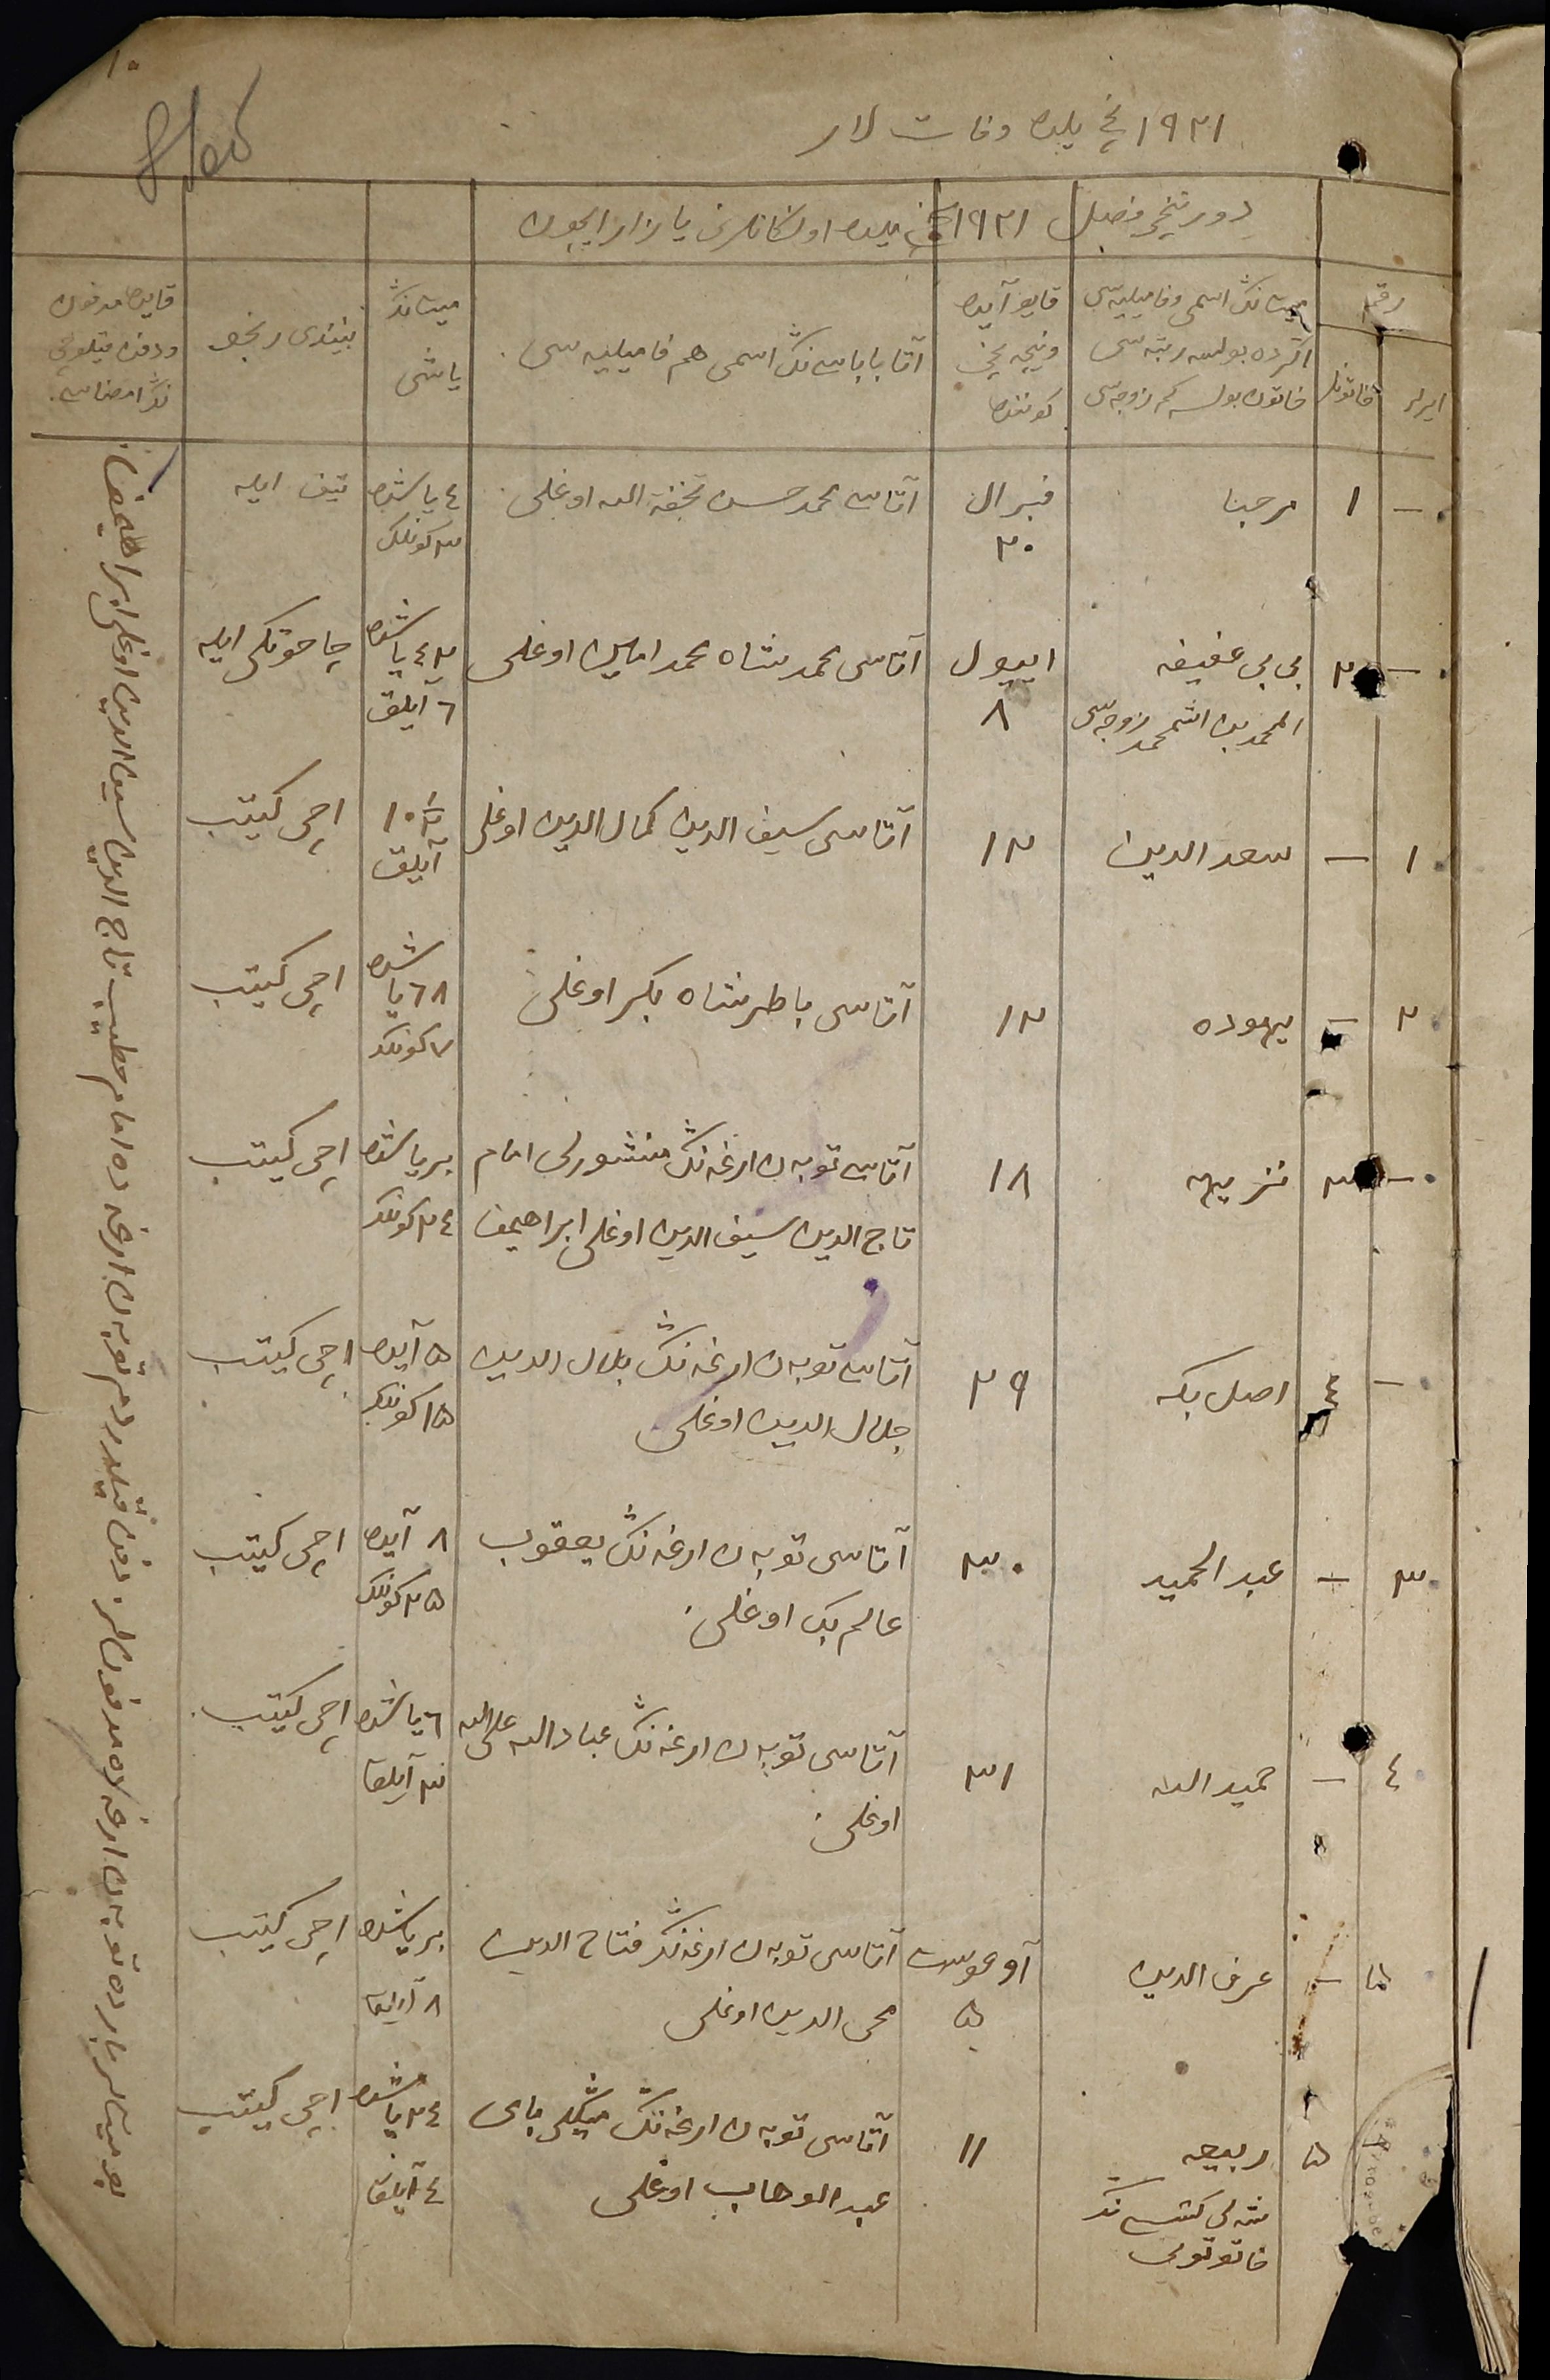 ١٠
١٩٢١ نچی یلده وفات لار
دورتنچی فصل ١٩٢١ نچی یلده اولگانلرنی یازار ایچون
رقم
ایرلر
خاتونلر
میت ننڭ اسمی وفامیلیه سی
اگرده بولسه رتبه سی
خاتون بولسه کم زوجه سی
قایو آیده
ونیچه نچی
کوننده
آتا باباسی ننڭ اسمی هم فامیلیه سی
میت ننڭ
یاشی
نیندی رنجو
قایده مدفون
ودفن قیلوچی
ننڭ امضاسی
—
١
مرحبا
فبرال
٢٠
آتاسی محمد حسن تحفة الله اوغلی
٤ یاشده
٣ کونلک
تیف ایله
—
٢
بی بی عفیفه
زوجه سی
اییول
٨
آتاسی محمد شاه محمد امین اوغلی
٤٢ یاشده
٦ آیلق
چاحوتکی ایله
١
—
سعد الدین
١٢
آتاسی سیف الدین کمال الدین اوغلی
آیلق
اچی کیتب
٢
—
یهوده
١٢
آتاسی باطرشاه بکر اوغلی
٦٨ یاشده
٧ کونلک
اچی کیتب
—
٣
نزیهه
١٨
آتاسی توبه ن ارغه ننڭ منشورلی امام
تاج الدین سیف الدین اوغلی ابراهیمف
بر یاشده
٢٤ کونلک
اچی کیتب
—
٤
اصل بکه
٢٩
آتاسی توبه ن ارغه ننڭ بلال الدین
جلال الدین اوغلی
٥ آیده
١٥ کونلک
اچی کیتب
٣
—
عبد الحمید
٣٠
آتاسی توبه ن ارغه ننڭ یعقوب
عالم بک اوغلی
٨ آیده
٢٥ کونلک
اچی کیتب
٤
—
حمید الله
٣١
آتاسی توبه ن ارغه ننڭ عباد الله علی الله
اوغلی
٦ یاشده
٣ آیلق
اچی کیتب
٥
—
عرف الدین
آوغوست
٥
آتاسی توبه ن ارغه ننڭ فتاح الدین
محی الدین اوغلی
بر یاشده
٨ آیلق
اچی کیتب
—
٥
ربیعه
١١
آتاسی توبه ن ارغه ننڭ میڭلی بای
عبد الوهاب اوغلی
٢٤ یاشده
٤ آیلق
اچی کیتب
بو میت لر بارده توبه ن ارغه ده مدفون لر دفن قیلدردم توبه ن ارغه ده امام خطیب تاج الدین سیف الدین اوغلی ابراهیمف